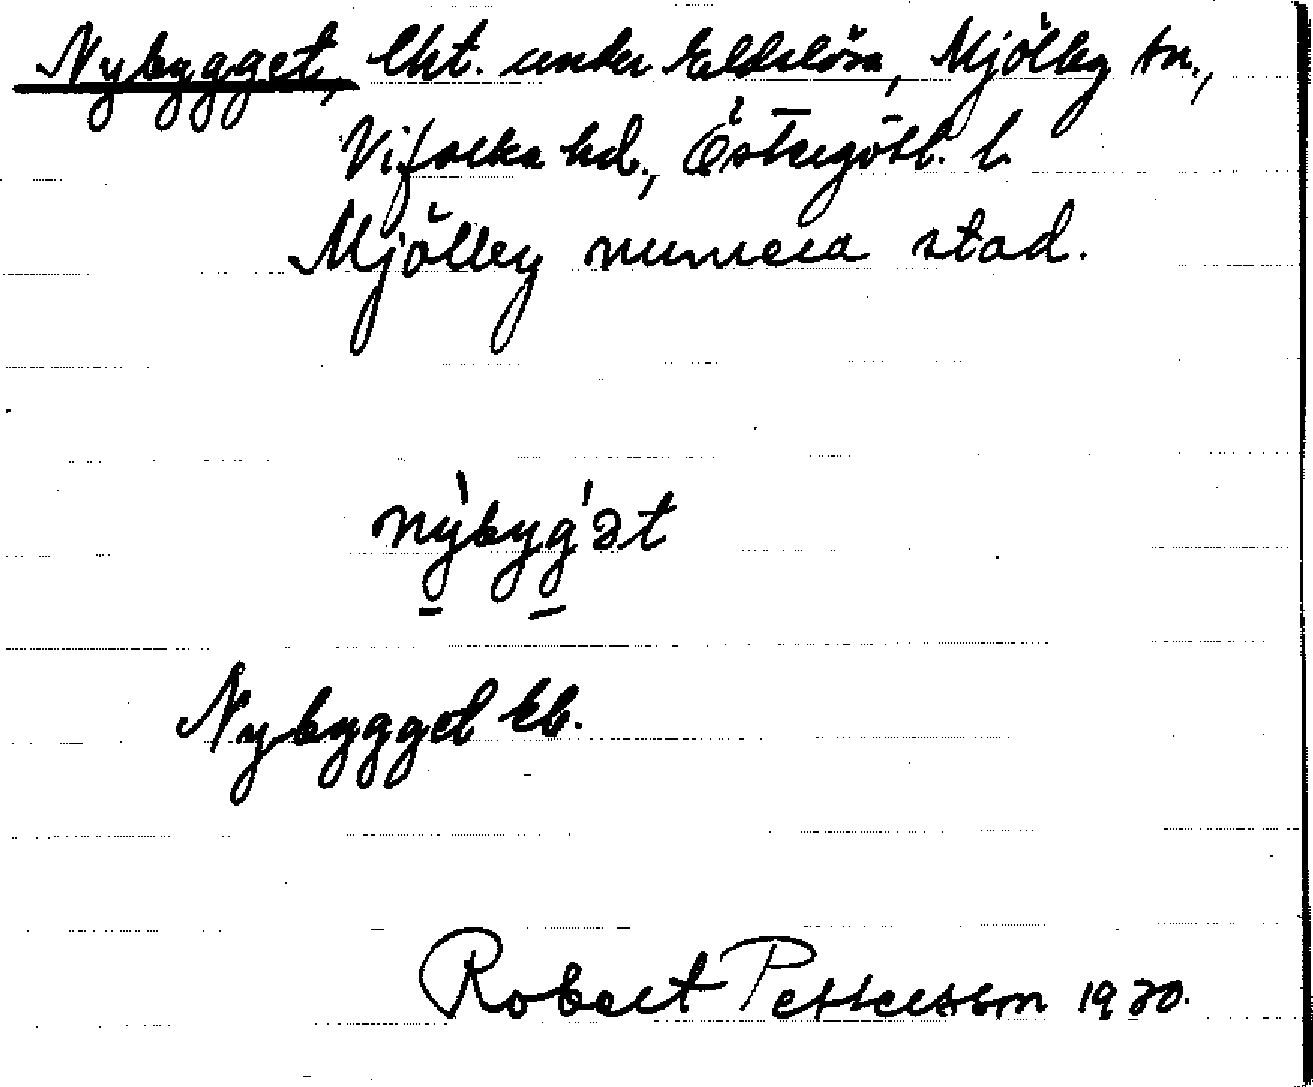 Nybygget, lht. under Eldslösa, Mjölby sn.,
Vifolka hd., Östergötl. l.
Mjölby numera stad.
nỳ̠byǵ̠ət
Nybygget Eb.
Robert Pettersson 1920.